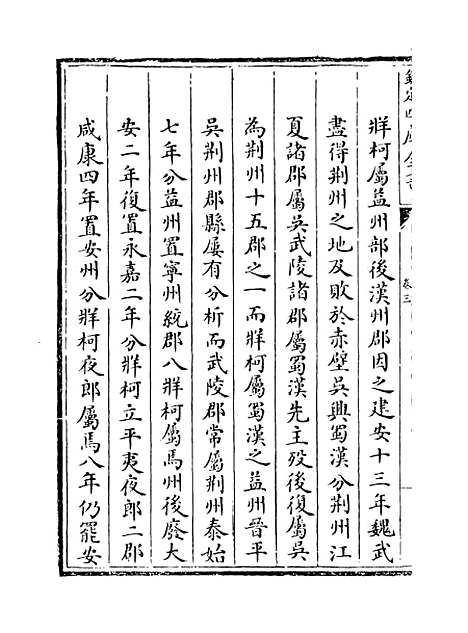 欽定四庫全書
卷三
牂柯屬益州部後漢州郡因之建安十三年魏武
盡得荆州之地及敗於赤壁吳與蜀漢分荆州江
夏諸郡屬吳武陵諸郡屬蜀漢先主殁後復屬吳
為荆州十五郡之一而牂柯屬蜀漢之益州晉平
吳荆州郡縣屢有分析而武陵郡常屬荆州泰始
七年分益州置寧州統郡八牂柯屬焉州後廢大
安二年復置永嘉二年分牂柯立平夷夜郎二郡
咸康四年置安州分牂柯夜郎屬焉八年仍罷安